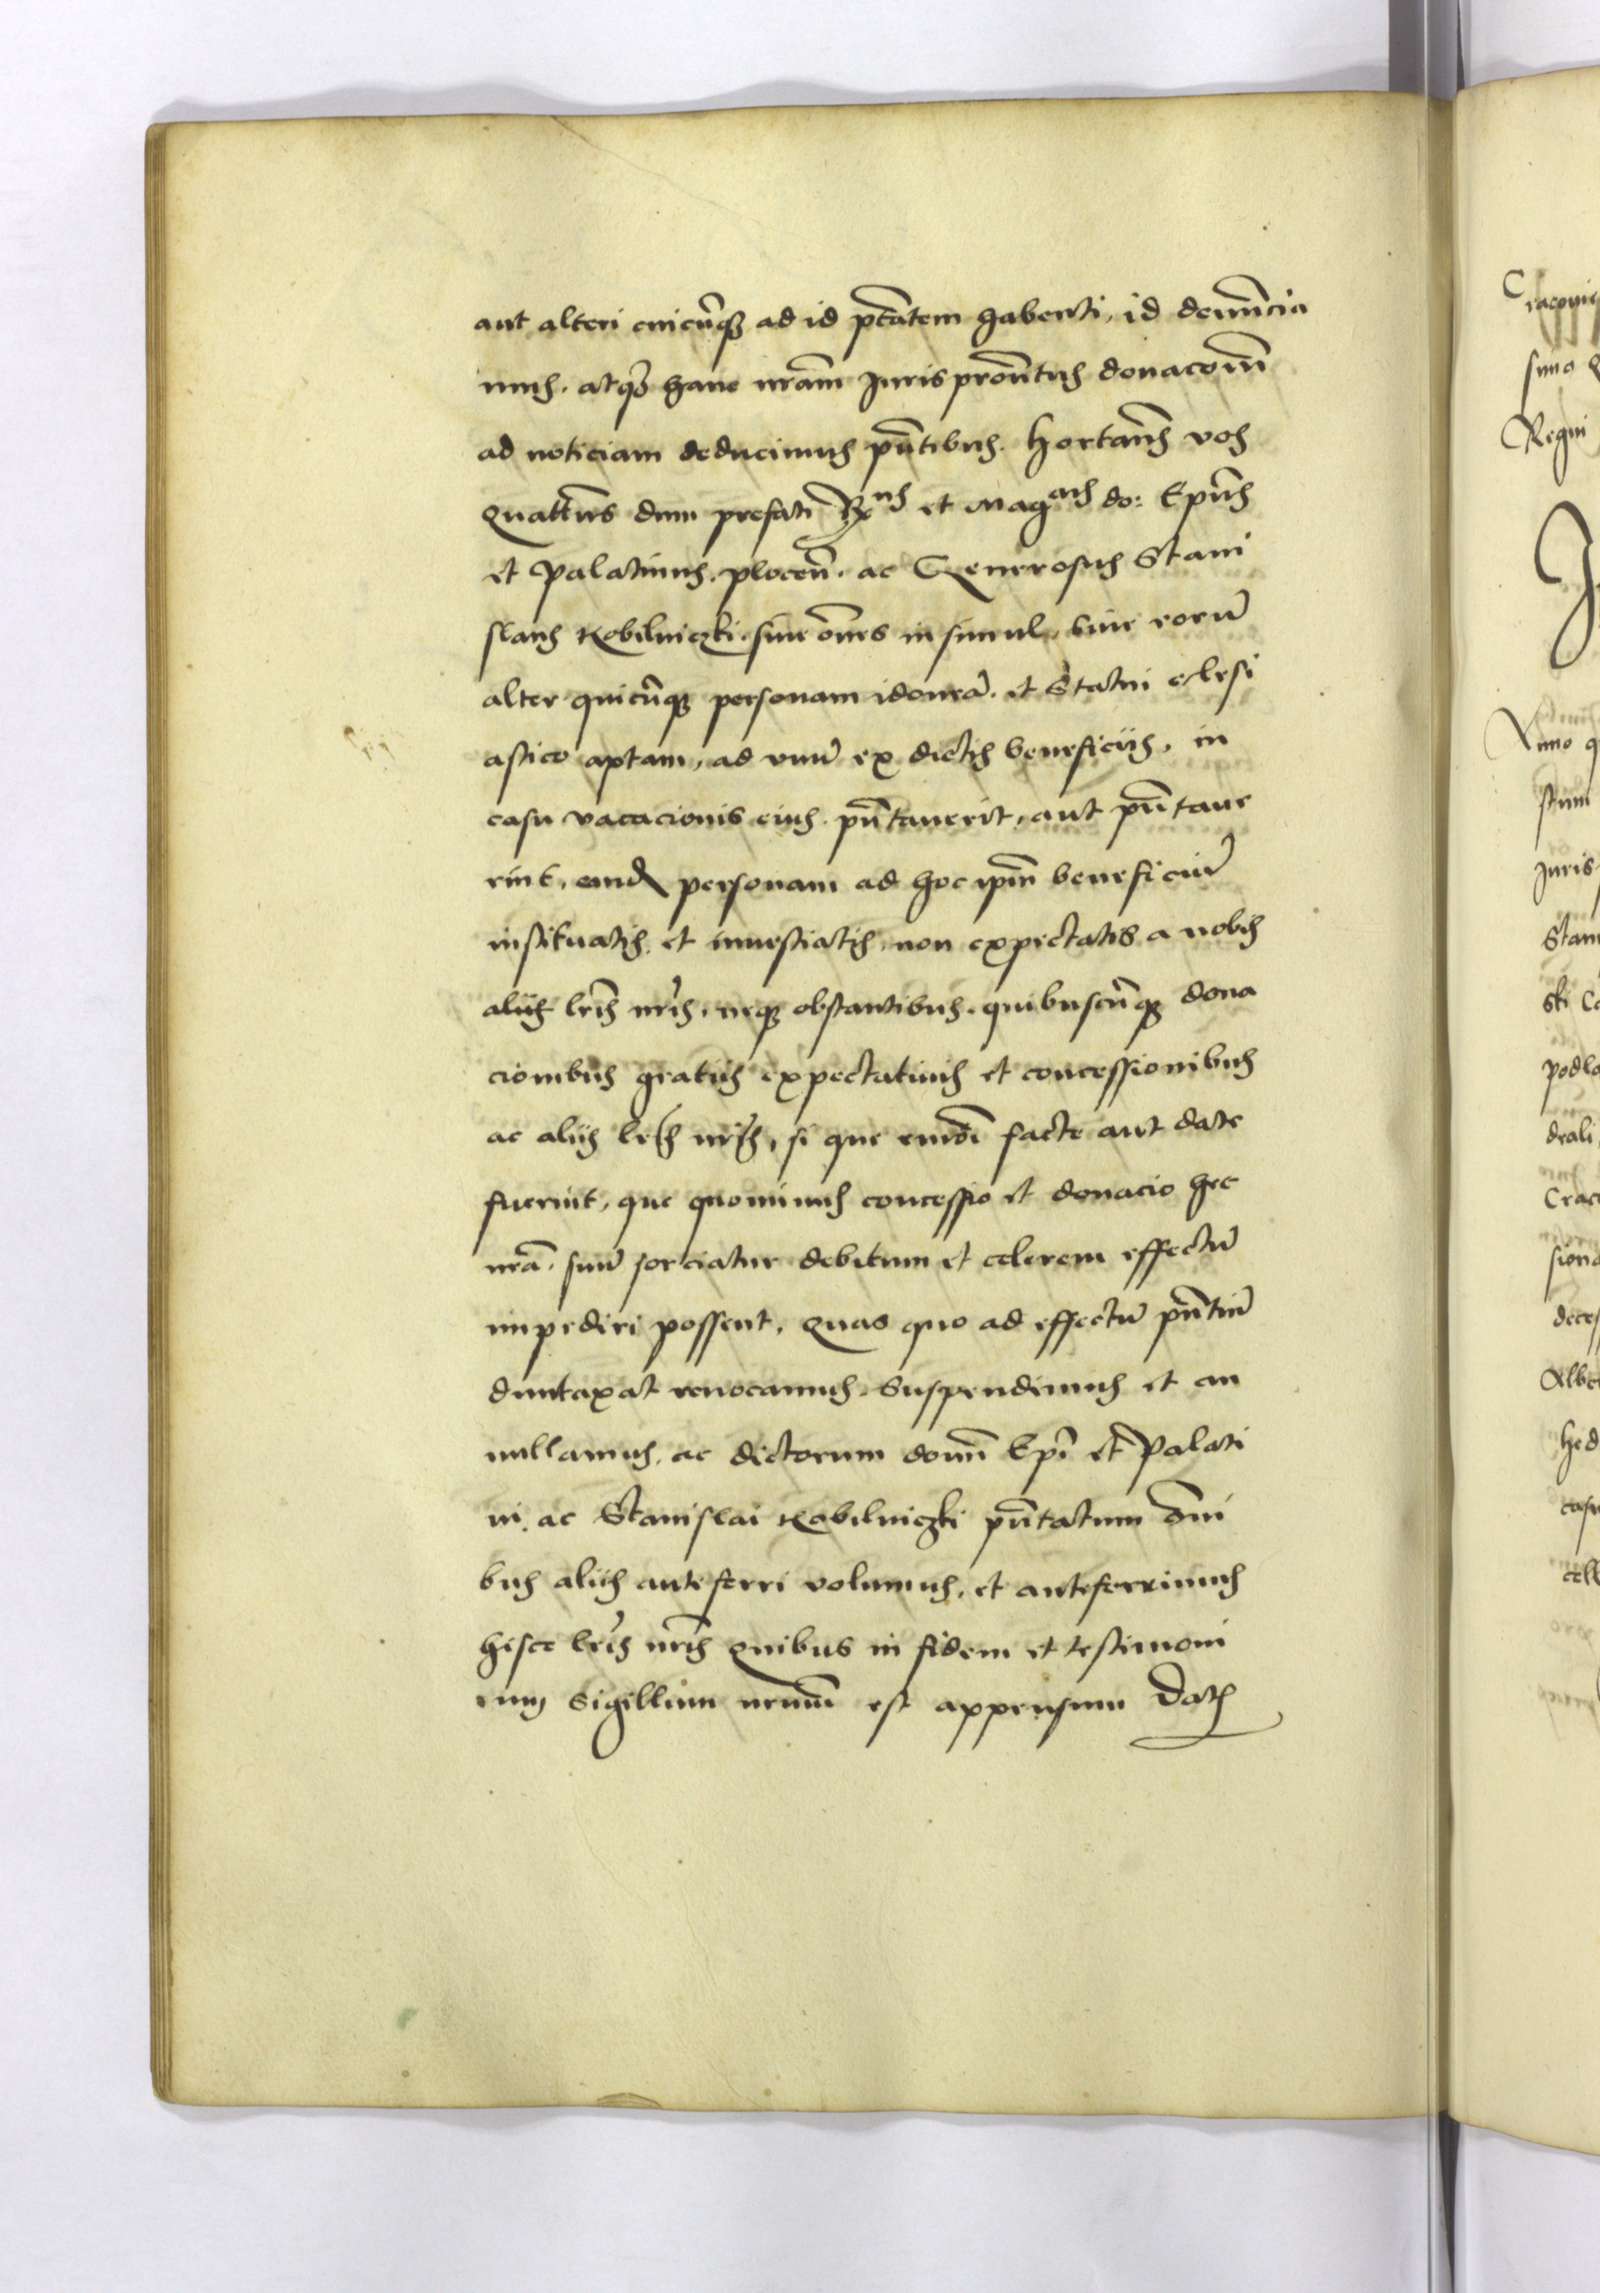 aut alteri cuicūq3 ad id ptātem habenti, id denūcia
mus. atq3 hanc nrām Juris pñtatus donacōm̄
ad noticiam deducimus pñtibus. Hortañs vos
quat̄ns dum prefati Rx̄ ꝰ et Mag cus do: Ep̄us
et Palatinus. plocen̄. ac Generosus Stani
slaus Kobilniczki. siue om̄es in simul, siue eorū
alter quicūq3 personam idoneā. et Statui eclesi
astico aptam, ad vnū ex dictis beneficiis, in
casu vacacionis eius pñtauerit, aut pñtaue
rint, eand personam ad hoc ipm̄ beneficiū
instituatis et inuestiatis, non expectatis a nobis
aliis lrīs nrīs, neq3 obstantibus. quibuscūq3 dona
cionibus gratiis expectatiuis et concessionibus
ac aliis lrīs nrīs, si que cuidī facte aut date
fuerint, que quominus concessio et donacio hec
nrā. suū sorciatur debitum et celerem effectū
impediri possent, quas quo ad effectū pñtiū
duntaxat reuocamus. Suspendimus et an
nullamus. ac dictorum domī Ep̄i et Palati
ni. ac Stanislai Kobilniczki pñtatum om̄i
bus aliis anteferri volumus, et anteferrimus
hisce lrīs nrīs quibus in fidem et testimoni
rum sigillum nrum̄ est appensum Datꝭ
Cracovie
simo
Regni
Anno q
stum
Juris
Stani
ski Ca
podla
drali
Craco
siona
deces
Albe
hed
casu
cell